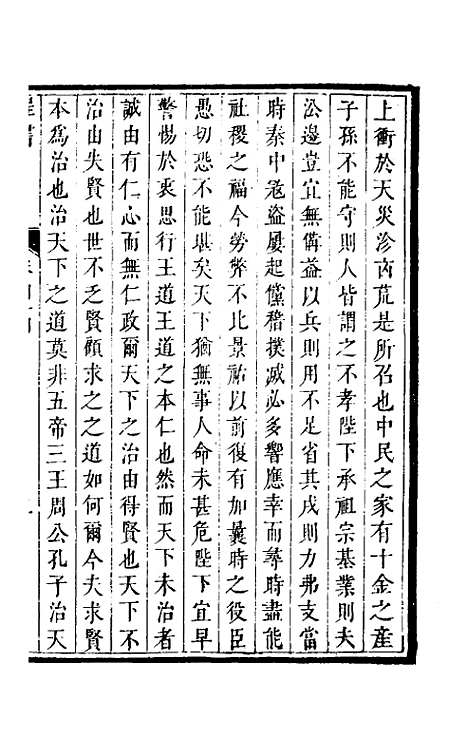 上衝於天災沴凶荒是所召也中民之家有十金之產
子孫不能守則人皆謂之不孝陛下承祖宗基業則夫
㳂邊豈宜無備益以兵則用不足省其戍則力弗支當
時秦中冦盜屢起儻稽撲滅必多響應幸而尋時盡能
社稷之福今勞弊不比景祐以前復有加曩時之役臣
愚切恐不能堪矣天下猶無事人命未甚危陛下宜早
警惕於衷思行王道王道之本仁也然而天下未治者
誠由有仁心而無仁政爾天下之治由得賢也天下不
治由失賢也世不乏賢顧求之之道如何爾今夫求賢
本為治也治天下之道莫非五帝三王周公孔子治天